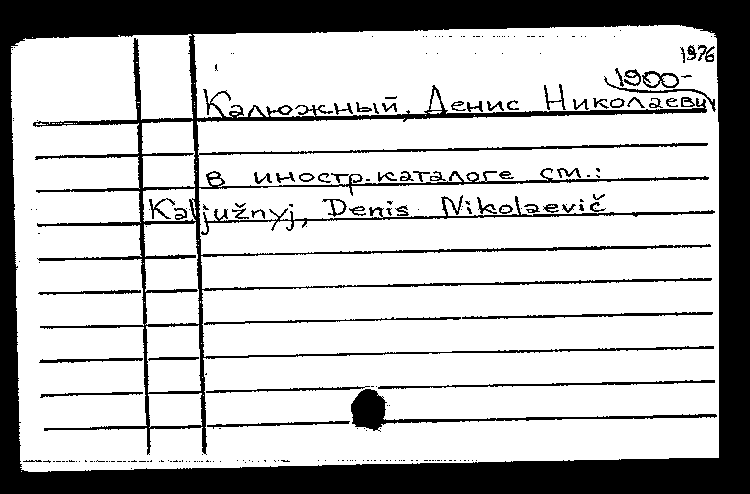 1976
1900-
Калюжный, Денис Николаевич
в иностр. каталоге см.:
Kaljužnyj, Denis Nikolaevič